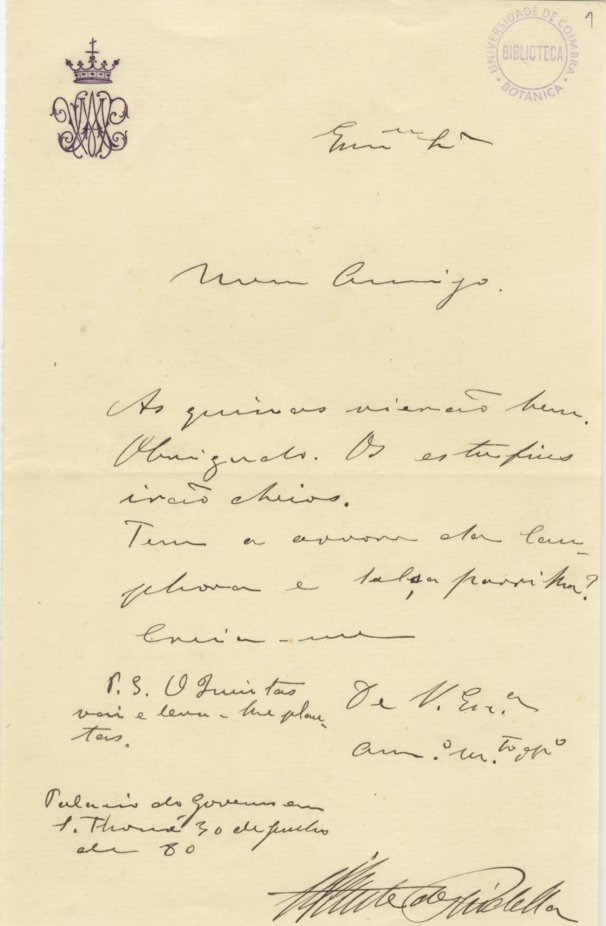 1
UNIVERSIDADE DE COIMBRA
BIBLIOTECA
BOTANICA
Exm.º Sr.
Meu Amigo.
As quinas vierão bem.
Obrigado. Os estufins
irão cheios.
Tem a arvore da cam-
phora e salsa parrilha?
Creia-me
De V. Ex.ª
am.º m.to
P.S. O Quintas
vai e leva-lhe plan-
tas.
Palacio do Governo em
S. Thomé 30 de Junho
de 80
de